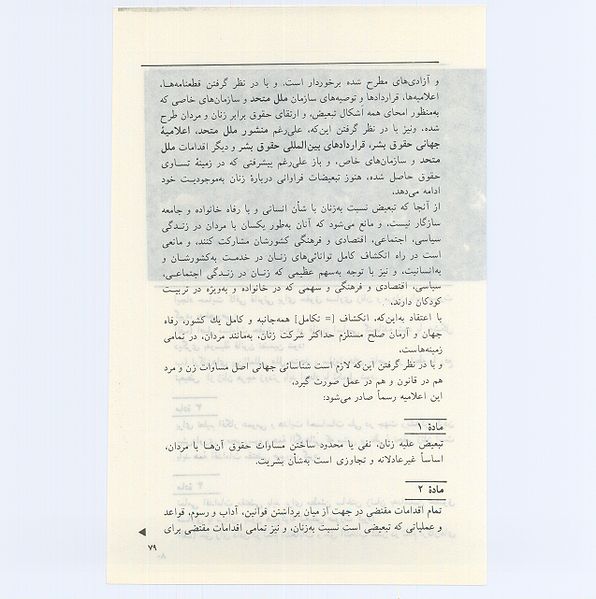 و آزادی‌های مطرح شده برخوردار است. و با در نظر گرفتن قطعنامه‌ها،
اعلامیه‌ها، قراردادها و توصیه‌های سازمان ملل متحد و سازمان‌های خاصی که
به‌منظور امحای همه اشکال تبعیض، و ارتقای حقوق برابر زنان و مردان طرح
شده، ونیز با در نظر گرفتن این‌که، علی‌رغم منشور ملل متحد، اعلامیهٔ
جهانی حقوق بشر، قراردادهای بین‌المللی حقوق بشر و دیگر اقدامات ملل
متحد و سازمان‌های خاص، و باز علی‌رغم پیشرفتی که در زمینهٔ تساوی
حقوق حاصل شده، هنوز تبعیضات فراوانی دربارهٔ زنان به‌موجودیت خود
ادامه می‌دهد.
از آنجا که تبعیض نسبت به‌زنان با شأن انسانی و با رفاه خانواده و جامعه
سازگار نیست، و مانع می‌شود که آنان به‌طور یکسان با مردان در زندگی
سیاسی، اجتماعی، اقتصادی و فرهنگی کشورشان مشارکت کنند، و مانعی
است در راه انکشاف کامل توانائی‌های زنان در خدمت به‌کشورشان و
به‌انسانیت، و نیز با توجه به‌سهم عظیمی که زنان در زندگی اجتماعی،
سیاسی، اقتصادی و فرهنگی و سهمی که در خانواده و به‌ویژه در تربیت
کودکان دارند.
با اعتقاد به‌این‌که، انکشاف [= تکامل] همه‌جانبه و کامل یك کشور، رفاه
جهان و آرمان صلح مستلزم حداکثر شرکت زنان، به‌مانند مردان، در تمامی
زمینه‌هاست.
و با در نظر گرفتن این‌که لازم است شناسائی جهانی اصل مساوات زن و مرد
هم در قانون و هم در عمل صورت گیرد.
این اعلامیه رسماً صادر می‌شود:
مادهٔ ۱
تبعیض علیه زنان، نفی یا محدود ساختن مساوات حقوق آن‌ها با مردان،
اساساً غیرعادلانه و تجاوزی است به‌شأن بشریت.
مادهٔ ۲
تمام اقدامات مقتضی در جهت از میان برداشتن قوانین، آداب و رسوم، قواعد
و عملیاتی که تبعیضی است نسبت به‌زنان، و نیز تمامی اقدامات مقتضی برای
۷۹